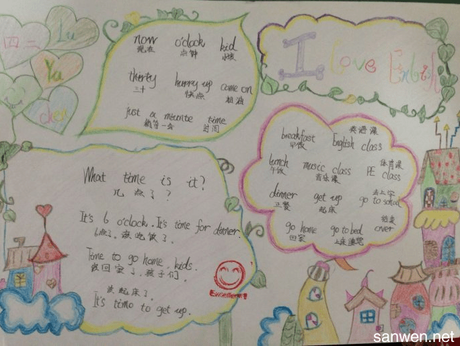 四二
Lu
Yu
chen
now o'clock kid
现在 点钟 小孩
thirty hurry up come on
三十 快点
just a minute time
稍等一会 时间
I Love English
英语课
breakfast English class
早饭 体育课
lunch music class PE class
午饭 音乐课 去上学
dinner get up go to school
正餐 起床 结束
go home go to bed over
回家 上床睡觉
What time is it?
几点了?
It's 6 o'clock. It's time for dinner.
6点了,该吃饭了。
Time to go home, kids.
该回家了,孩子们。
该起床了。
It's time to get up.
Excellent
sanwen.net